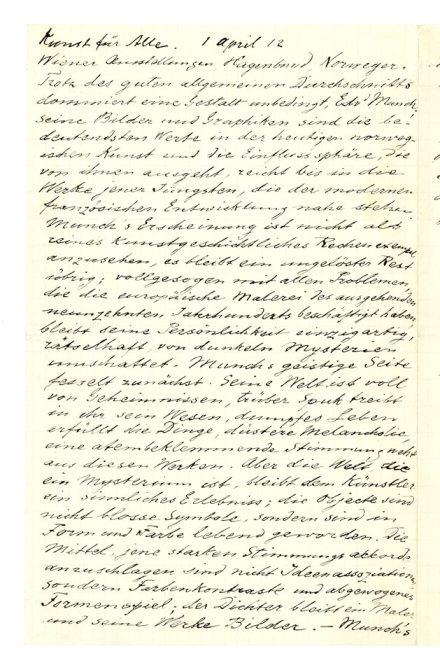 Kunst für Alle. 1 April 12
Wiener Ausstellungen Hagenbund, Norweger.
Trotz des guten allgemeinen Durchschnitts
dominiert eine Gestalt unbedingt, Edv. Munch,
seine Bilder und Graphiken sind die be-
deutendsten Werke in der heutigen norweg-
ischen Kunst und die Einflusssphäre, die
von ihnen ausgeht, reicht bis in die
Werke jener Jüngsten, die der modernen
französischen Entwicklung nahe stehen.
Munch's Erscheinung ist nicht als
reines kunstgeschichtliches Rechenexempel
anzusehen, es bleibt ein ungelöster Rest
übrig; vollgesogen mit allen Problemen,
die die europäische Malerei des ausgehenden
neunzehnten Jahrhunderts beschäftigt haben,
bleibt seine Persönlichkeit einzigartig,
rätselhaft von dunkeln Mysterien
umschattet. Munchs geistige Seite
fesselt zunächst. Seine Welt ist voll
von Geheimnissen, trüber Spuk treibt
in ihr sein Wesen, dumpfes Leben
erfüllt die Dinge, düstere Melancholie,
eine atembeklemmende Stimmung weht
aus diesen Werken. Aber die Welt, die
ein Mysterium ist, bleibt dem Künstler
ein sinnliches Erlebniss; die Objecte sind
nicht blosse Symbole, sondern sind in
Form und Farbe lebend geworden. Die
Mittel, jene starken Stimmungsakkorde
anzuschlagen sind nicht Ideenassoziation
sondern Farbenkontraste und abgewogenes
Formenspiel; der Dichter bleibt ein Maler
und seine Werke Bilder. – Munch's